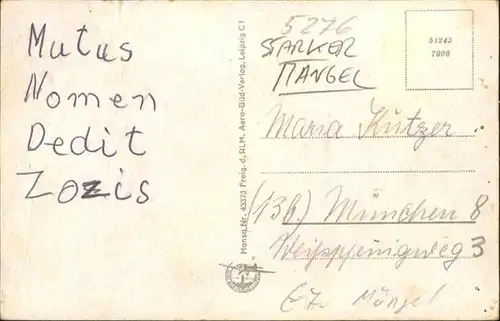 Mutus
Nomen
Dedit
Zozis
Hansa Nr. 43373 Freig. d. RLM. Aero-Bild-Verlag, Leipzig C1
5276
STARKER
MANGEL
51243
7006
Maria Kutzer
(13b) München 8
Weißpfenigweg 3
Mängel